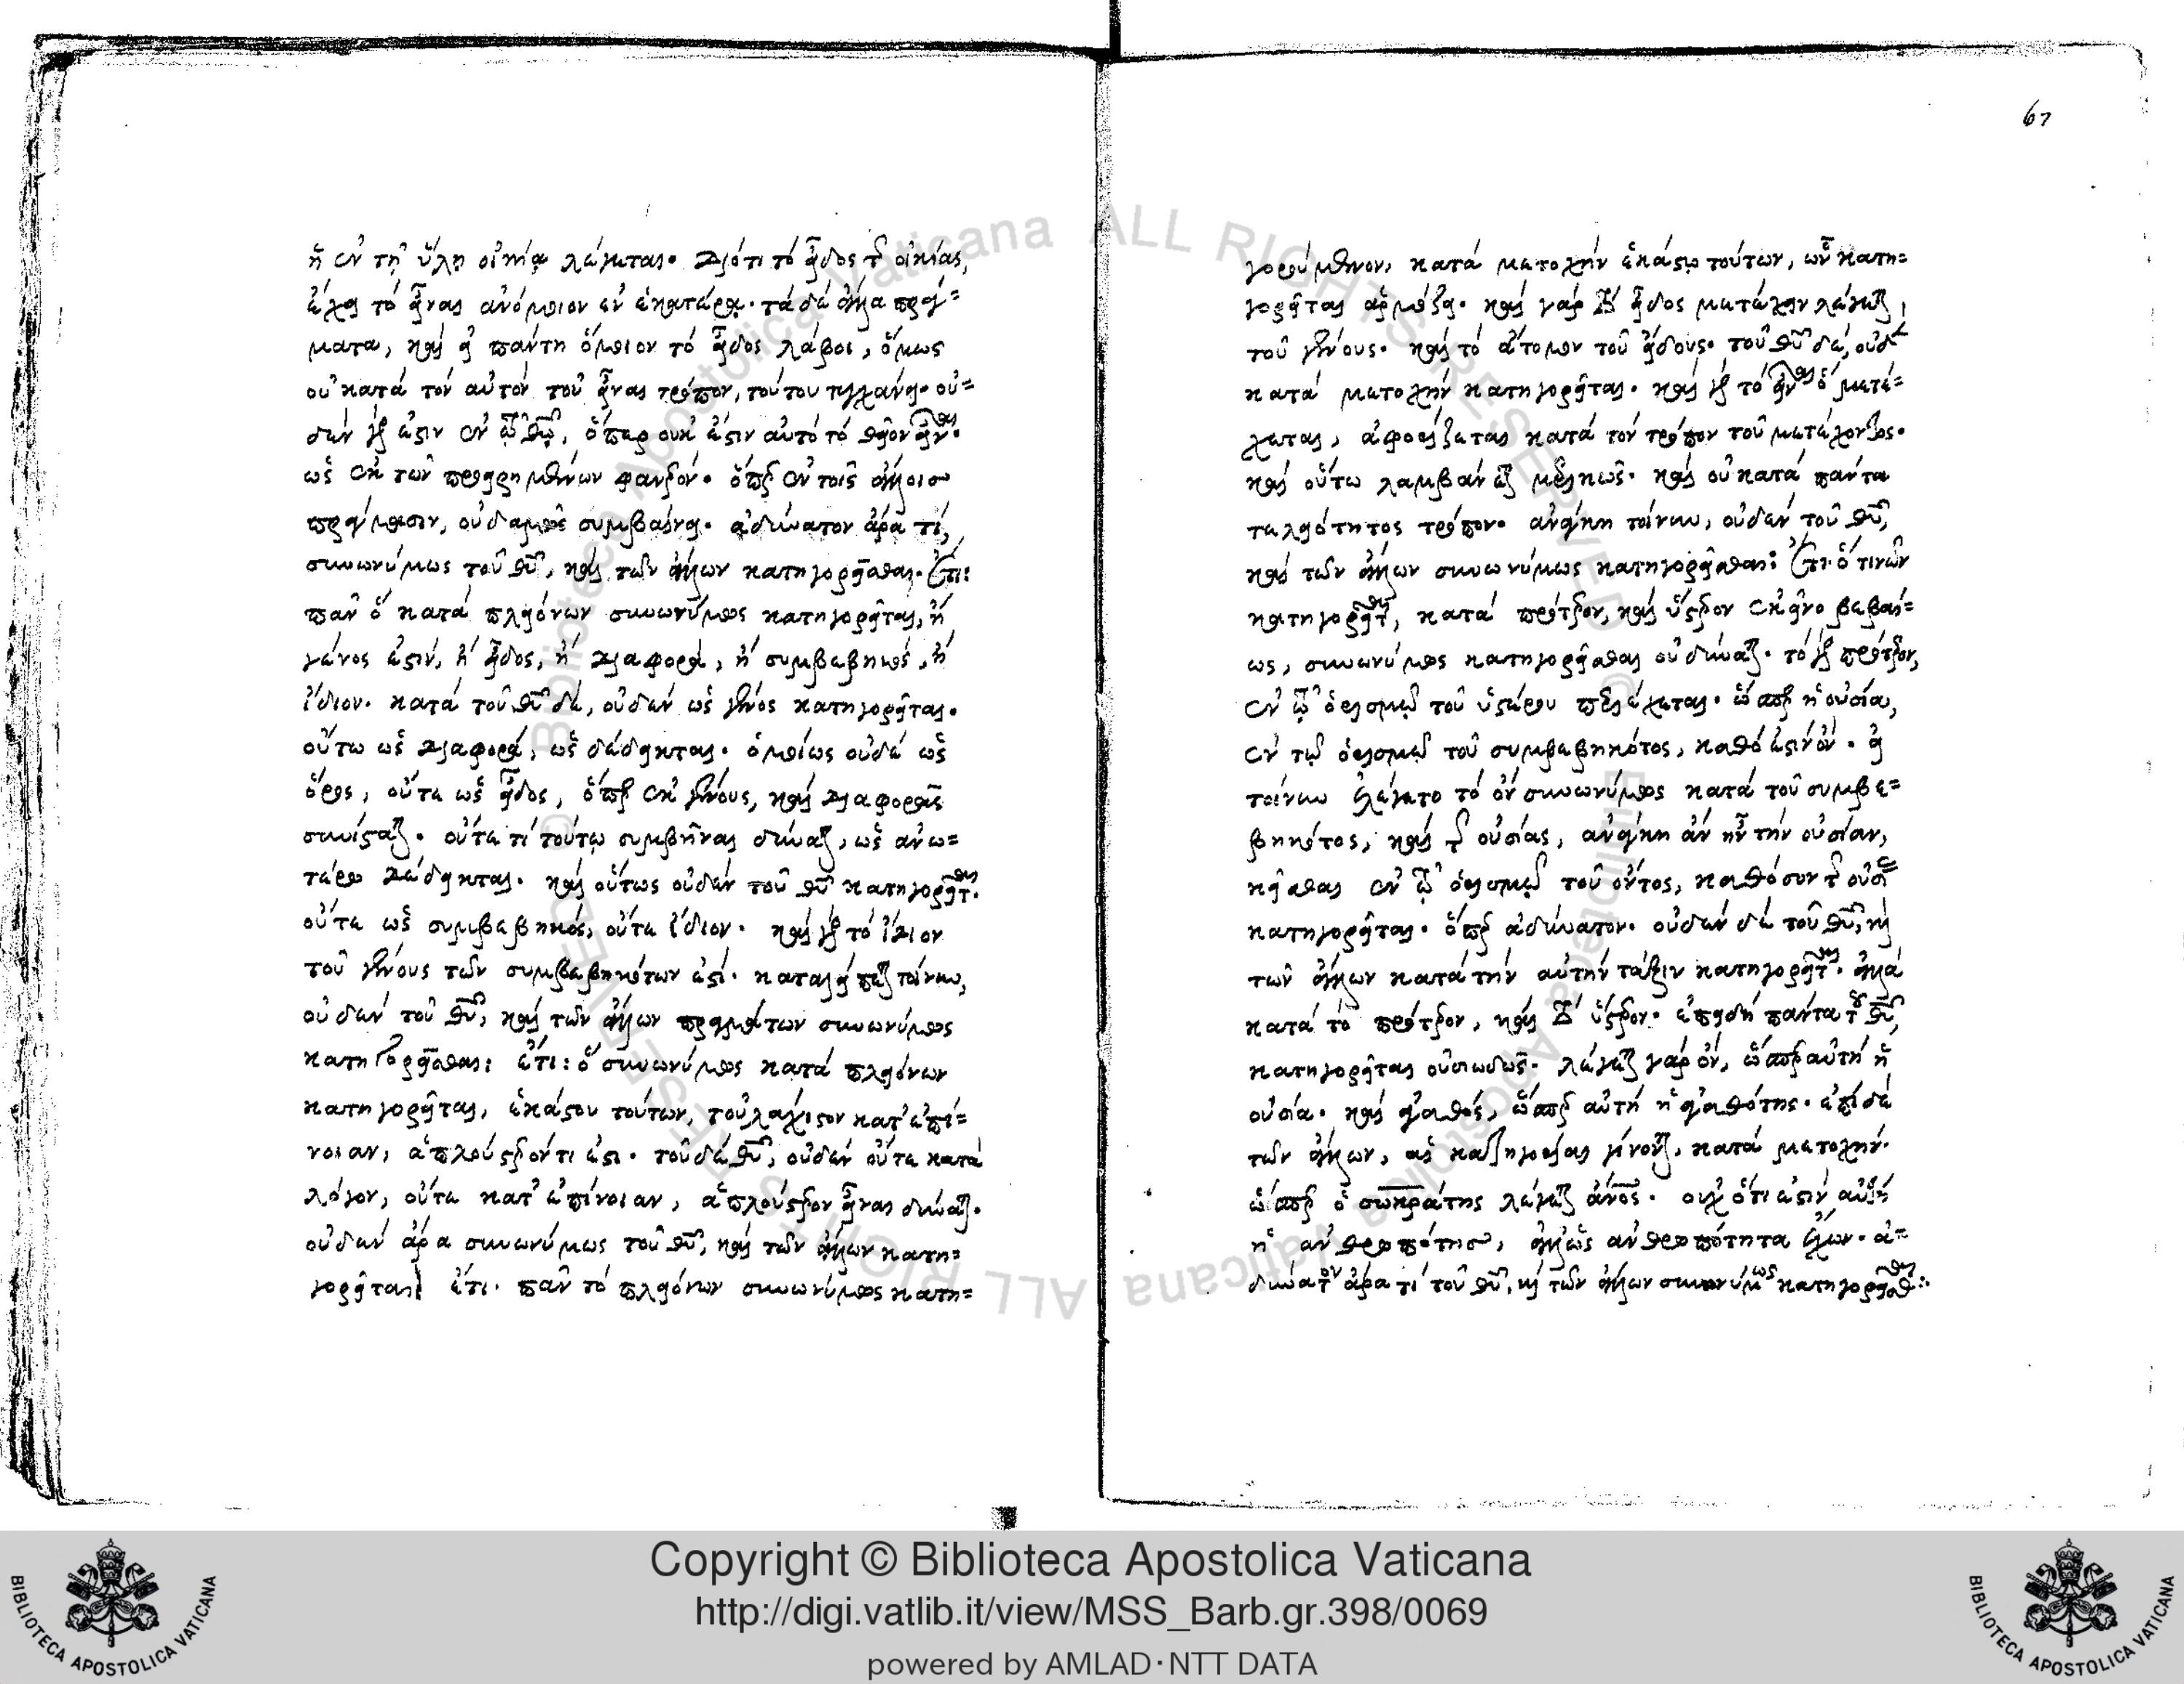 ἢ ἐν τῇ ὕλῃ οἰκίᾳ λέγεται. διότι τὸ εἶδος τῆς οἰκίας,
ἔχει τὸ εἶναι ἀνόμοιον ἐν ἑκατέρᾳ. τὰ δὲ ἄλλα πράγ=
ματα, καὶ εἰ πάντη ὅμοιον τὸ εἶδος λάβοι, ὅμως
οὐ κατὰ τὸν αὐτὸν τοῦ εἶναι τρόπον, τούτου τυγχάνει. οὐ=
δὲν γάρ ἐστιν ἐν τῷ θῶ, ὅπερ οὐκ ἔστιν αὐτὸ τὸ θεῖον εἶναι.
ὡς ἐκ τῶν προειρημένων φανερόν. ὅπερ ἐν τοῖς ἄλλοις
πράγμασιν, οὐδαμῶς συμβαίνει. ἀδύνατον ἄρα τί,
συνωνύμως τοῦ θυ, καὶ τῶν ἄλλων κατηγορεῖσθαι. Ἔτι:
πᾶν ὃ κατὰ πλειόνων συνωνύμως κατηγορεῖται, ἢ
γένος ἐστὶν, ἢ εἶδος, ἢ διαφορὰ, ἢ συμβεβηκὸς, ἢ
ἴδιον. κατὰ τοῦ θυ δὲ, οὐδὲν ὡς γένος κατηγορεῖται.
οὔτω ὡς διαφορὰ, ὡς δέδεικται. ὁμοίως οὐδὲ ὡς
ὅρος, οὔτε ὡς εἶδος, ὅπερ ἐκ γένους, καὶ διαφορᾶς
συνίσταται. οὔτε τὶ τούτῳ συμβῆναι δύναται, ὡς ἀνω=
τέρω δέδεικται. καὶ οὕτως οὐδὲν τοῦ θυ κατηγορεῖται.
οὔτε ὡς συμβεβηκὸς, οὔτε ἴδιον. καὶ γὰρ τὸ ἴδιον
τοῦ γένους τῶν συμβεβηκότων ἐστί. καταλείπεται τοίνυν,
οὐδὲν τοῦ θυ, καὶ τῶν ἄλλων πραγμάτων συνωνύμως
κατηγορεῖσθαι: ἔτι: ὃ συνωνύμως κατὰ πλειόνων
κατηγορεῖται, ἑκάστου τούτων, τοὐλάχιστον κατ' ἐπί=
νοιαν, ἁπλούστερόν τι ἐστι. τοῦ δὲ θυ, οὐδὲν οὔτε κατὰ
λόγον, οὔτε κατ' ἐπίνοιαν, ἁπλούστερον εἶναι δύναται.
οὐδὲν ἄρα συνωνύμως τοῦ θυ, καὶ τῶν ἄλλων κατη=
γορεῖται] ἔτι. πᾶν τὸ πλειόνων συνωνύμως κατη=
67
γορούμενον, κατὰ μετοχὴν ἑκάστῳ τούτων, ὧν κατη=
γορεῖται ἁρμόζει. καὶ γὰρ τὸ εἶδος μετέχειν λέγεται,
τοῦ γένους. καὶ τὸ ἄτομον τοῦ εἴδους. τοῦ θυ δὲ, οὐδὲν
κατὰ μετοχὴν κατηγορεῖται. καὶ γὰρ τὸ εἶναι ὃ μετέ=
χεται, ἀφορίζεται κατὰ τὸν τρόπον τοῦ μετέχοντος.
καὶ οὕτω λαμβάνεται μερικῶς. καὶ οὐ κατὰ πάντα
τελειότητος τρόπον. ἀνάγκη τοίνυν, οὐδὲν τοῦ θυ,
καὶ τῶν ἄλλων συνωνύμως κατηγορεῖσθαι: Ἔτι ὅ τινῶν
κατηγορεῖται, κατὰ πρότερον, καὶ ὕστερον ἐκεῖνο βεβαί=
ως, συνωνύμως κατηγορεῖσθαι οὐ δύναται. τὸ γὰρ πρότερον,
ἐν τῷ ὁρισμῷ τοῦ ὑστέρου περιέχεται. ὥσπερ ἡ οὐσία,
ἐν τῷ ὁρισμῷ τοῦ συμβεβηκότος, καθό ἐστιν ὄν. εἰ
τοίνυν ἐλέγετο τὸ ὂν συνωνύμως κατὰ τοῦ συμβε=
βηκότος, καὶ τῆς οὐσίας, ἀνάγκη ἂν ἦν τὴν οὐσίαν,
κεῖσθαι ἐν τῷ ὁρισμῷ τοῦ ὄντος, καθόσον τῆς οὐσίας
κατηγορεῖται. ὅπερ ἀδύνατον. οὐδὲν δὲ τοῦ θυ, καὶ
τῶν ἄλλων κατὰ τὴν αὐτὴν τάξιν κατηγορεῖται. ἀλλὰ
κατὰ τὸ πρότερον, καὶ τὸ ὕστερον. ἐπειδὴ πάντα τοῦ θυ,
κατηγορεῖται οὐσιωδῶς. λέγεται γὰρ ὂν, ὥσπερ αὐτὴ ἡ
οὐσία. καὶ ἀγαθὸς, ὥσπερ αὐτὴ ἡ ἀγαθότης. ἐπὶ δὲ
τῶν ἄλλων, αἱ κατηγορίαι γίνονται, κατὰ μετοχήν.
ὥσπερ ὁ σωκράτης λέγεται ἄνος. οὐχ ὅτι ἐστὶν αὐτὴ
ἡ ἀνθρωπότης, ἀλλ' ὡς ἀνθρωπότητα ἔχων. ἀ=
δύνατον ἄρα τὶ τοῦ θυ, καὶ τῶν ἄλλων συνωνύμως κατηγορεῖσθαι:.
Copyright © Biblioteca Apostolica Vaticana
http://digi.vatlib.it/view/MSS_Barb.gr.398/0069
powered by AMLAD·NTT DATA
BIBLIOTECA APOSTOLICA VATICANA
BIBLIOTECA APOSTOLICA VATICANA